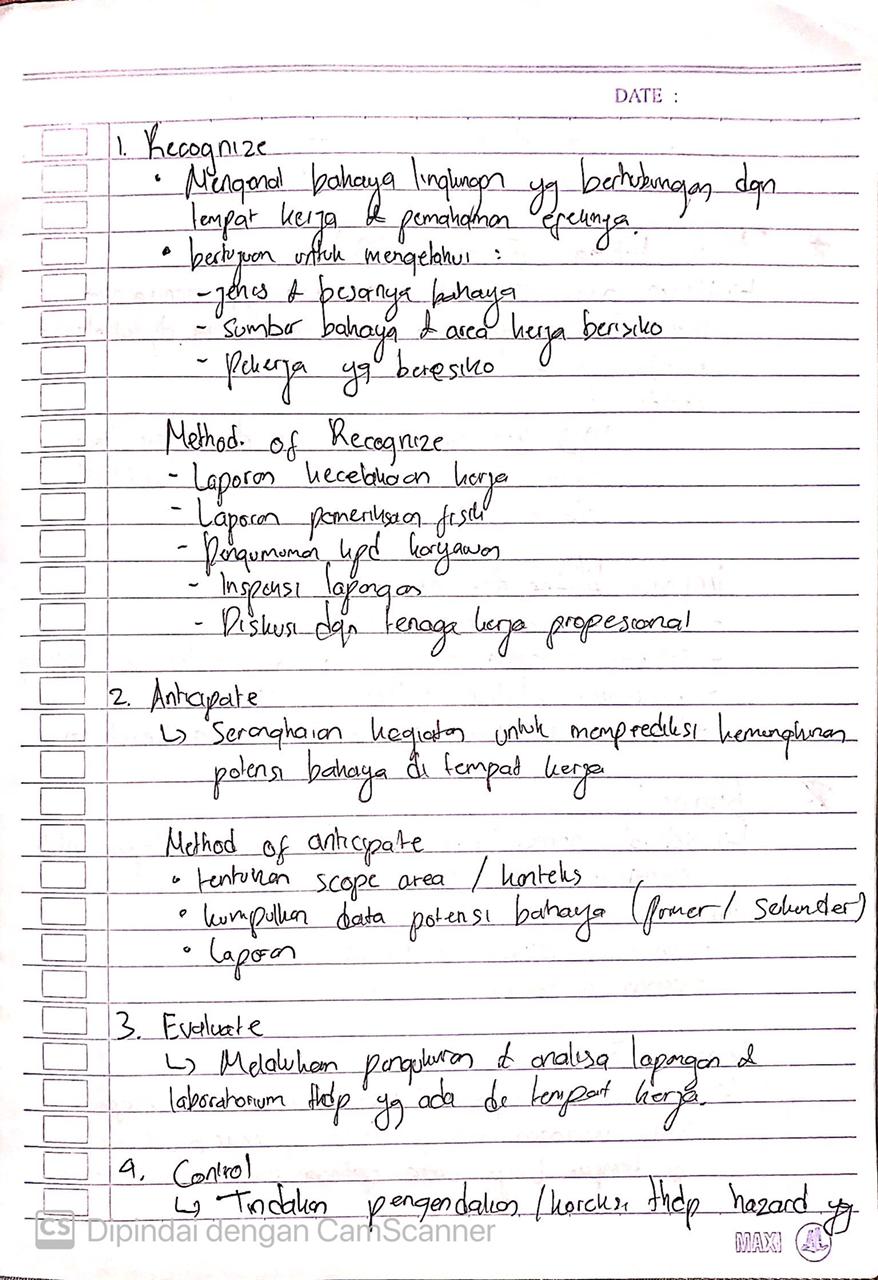 DATE :
1. Recognize
• Mengenal bahaya lingkungan yg berhubungan dgn
tempat kerja & pemahaman efeknya.
• bertujuan untuk mengetahui :
- jenis & besanya bahaya
- sumber bahaya & area kerja berisiko
- Pekerja yg beresiko
Method. of Recognize
- Laporan kecelakaan kerja
- Laporan pemeriksaan fisik
- Pengumuman kpd karyawan
- Inspeksi lapangan
- Diskusi dgn tenaga kerja propesional
2. Anticipate
↳ Serangkaian kegiatan untuk memprediksi kemungkinan
potensi bahaya di tempat kerja
Method of anticipate
• tentukan scope area / konteks
• kumpulkan data potensi bahaya (primer / Sekunder)
• Laporan
3. Evaluate
↳ Melakukan pengukuran & analisa lapangan &
laboratorium thdp yg ada de tempat kerja.
4. Control
↳ Tindakan pengendalian /koreksi thdp hazard yg
CS Dipindai dengan CamScanner
MAXI